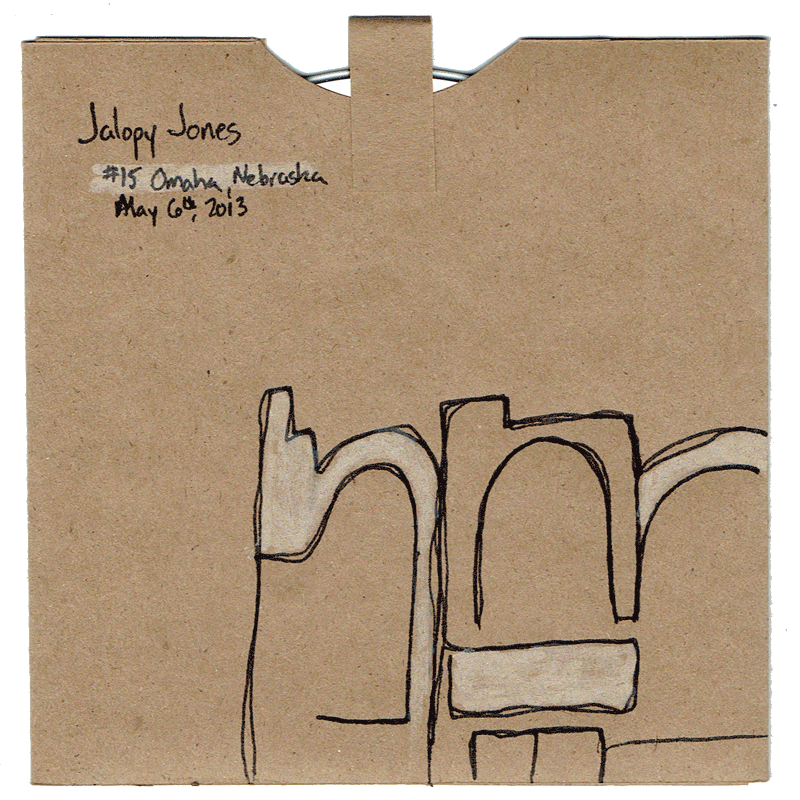 Jalopy Jones
#15 Omaha, Nebraska
May 6th, 2013